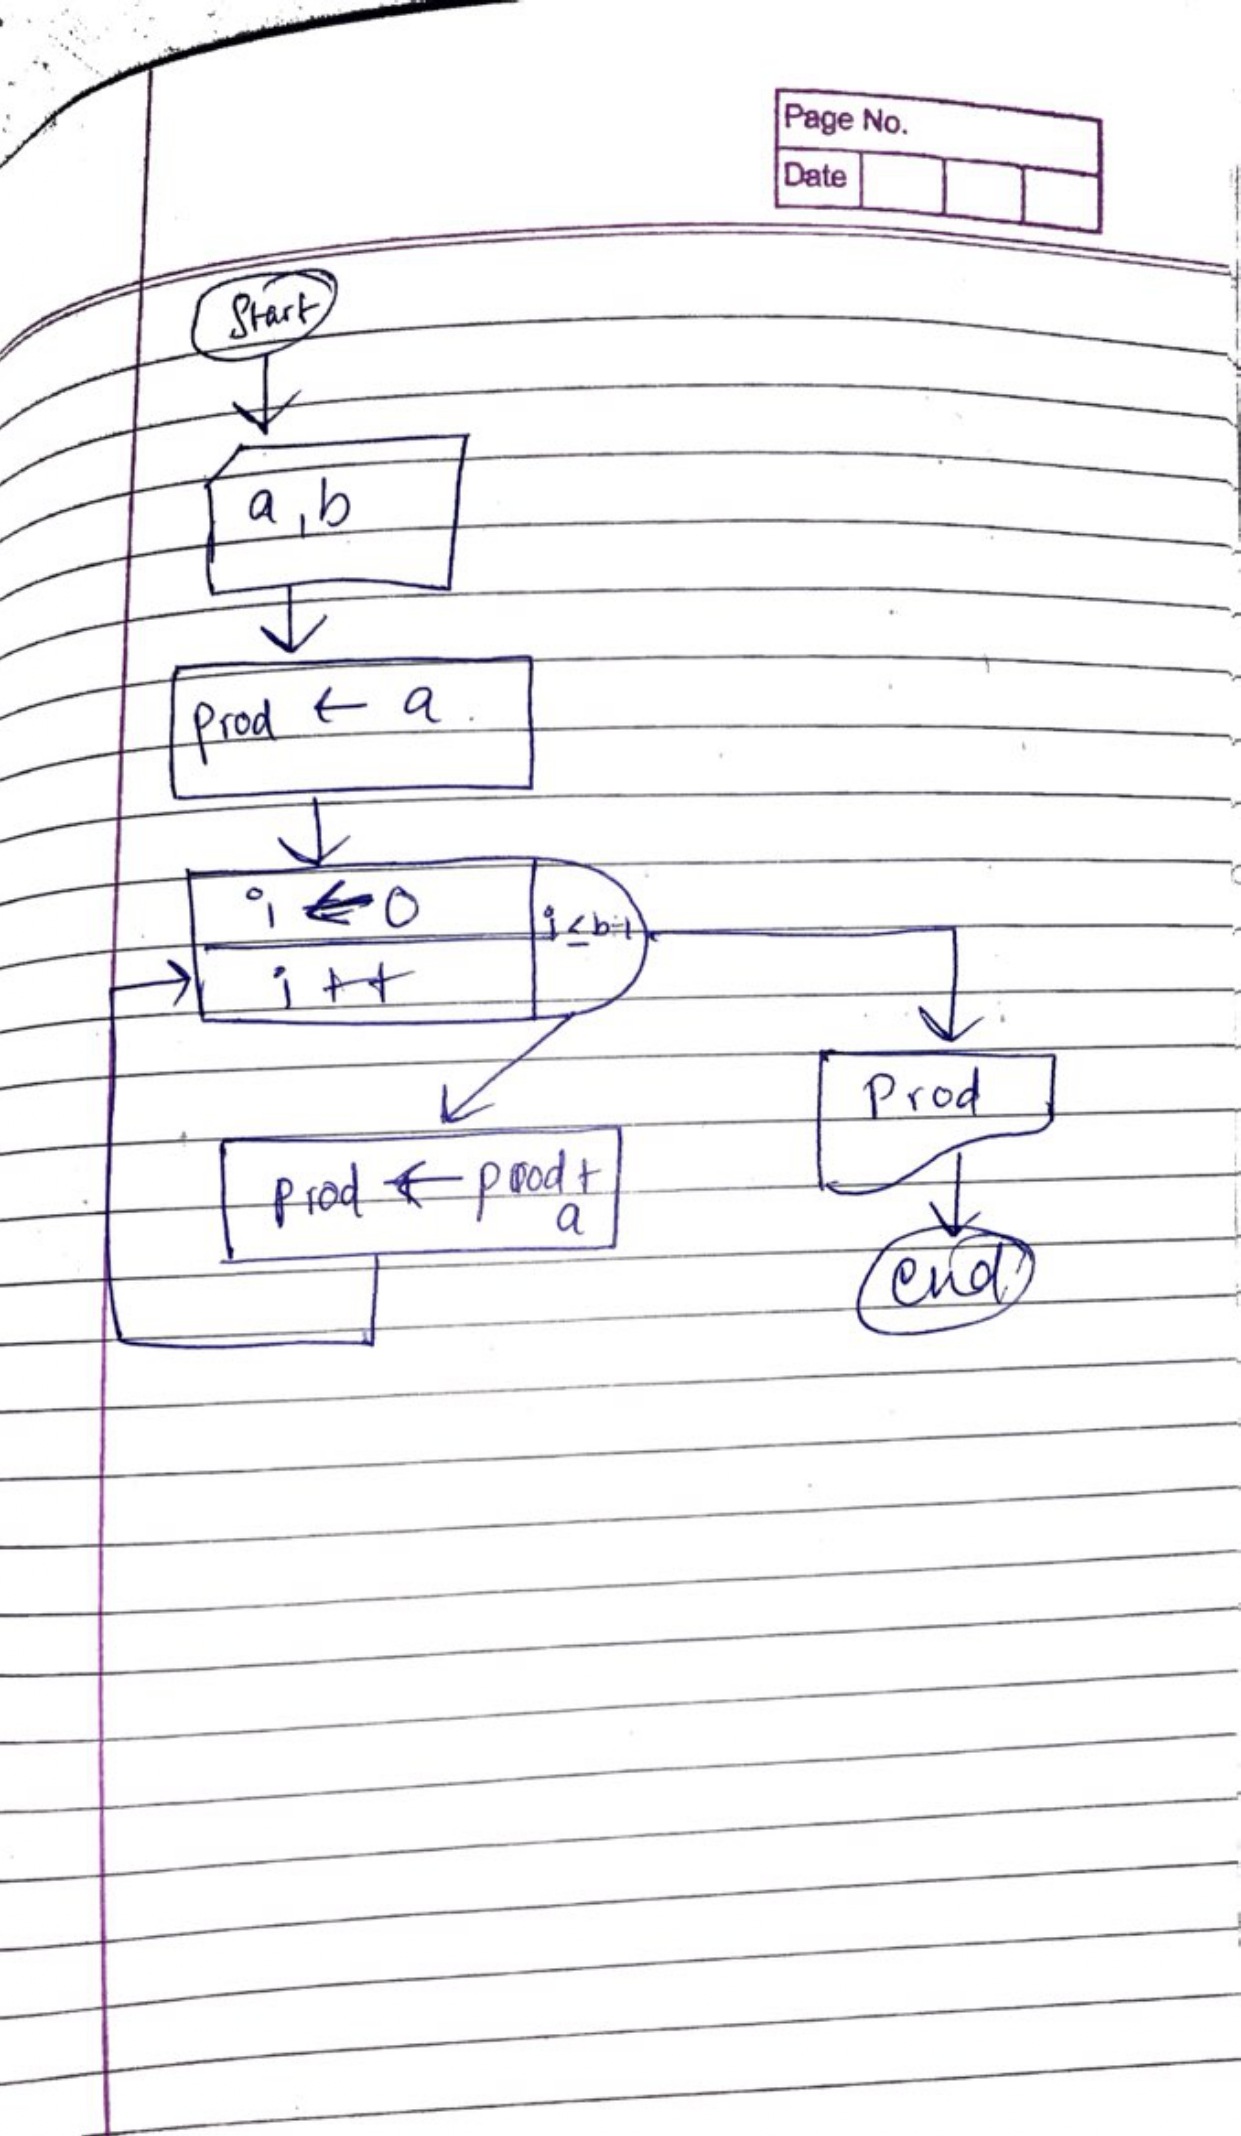 Page No.
Date
Start
a, b
prod ← a
i ← 0
i ≤ b-1
i ++
prod ← prod +
a
Prod
end